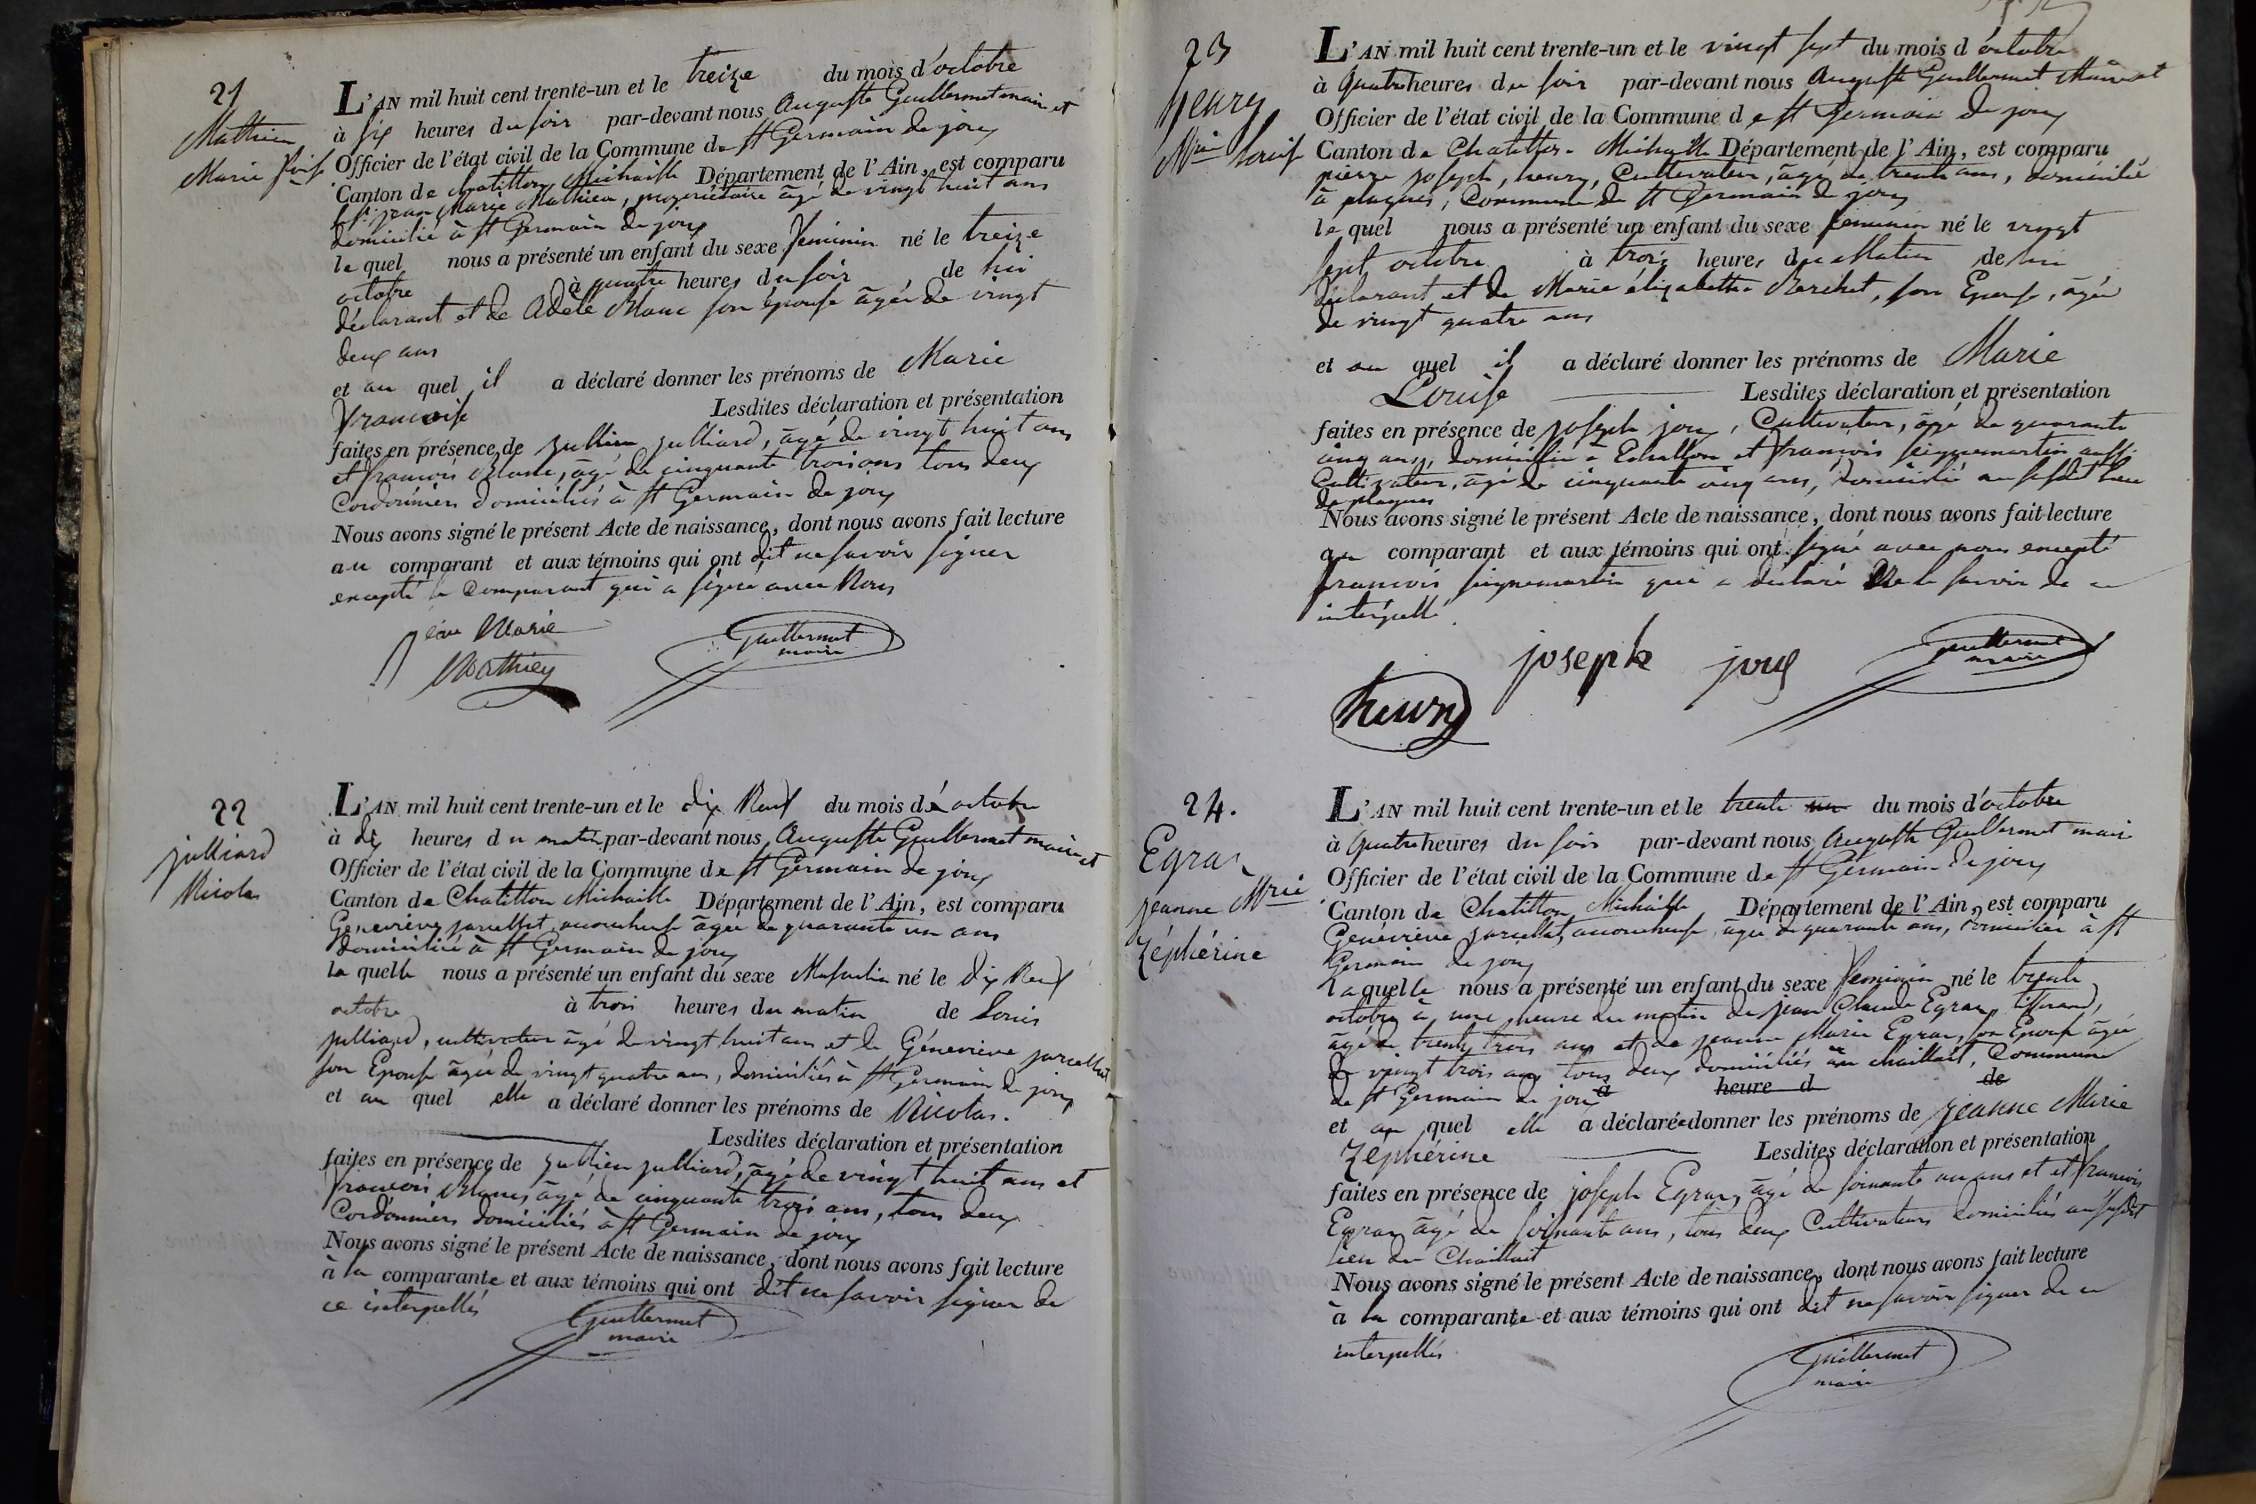 21
Mathieu
Marie fçoise
L'AN mil huit cent trente-un et le treize du mois d'octobre
à six heures du soir par-devant nous Auguste Guillermet maire et
Officier de l'état civil de la Commune de St Germain de joux
Canton de Chatillon Michaille Département de l'Ain, est comparu
jean Marie Mathieu, propriétaire âgé de vingt huit ans
domicilié à St Germain de joux
lequel nous a présenté un enfant du sexe feminin né le treize
octobre à quatre heures du soir de lui
déclarant et de Adèle Blanc son épouse âgée de vingt
deux ans
et au quel il a déclaré donner les prénoms de Marie
francoise Lesdites déclaration et présentation
faites en présence de jullien julliard, âgé de vingt huit ans
et francois Blanc, âgé de cinquante trois ans tous deux
Cordonniers domiciliés à St Germain de joux
Nous avons signé le présent Acte de naissance, dont nous avons fait lecture
au comparant et aux témoins qui ont dit ne savoir signer
excepté le Comparant qui a signé avec Nous
jean Marie
Mathiey
Guillermet
maire
22
julliard
Nicolas
L'AN mil huit cent trente-un et le dix Neuf du mois d'octobre
à dix heures du matin par-devant nous Auguste Guillermet maire et
Officier de l'état civil de la Commune de St Germain de joux
Canton de Chatillon Michaille Département de l'Ain, est comparu
Geneviève jarcellat, accoucheuse âgée de quarante un ans
domiciliée à St Germain de joux
la quelle nous a présenté un enfant du sexe Masculin né le dix Neuf
octobre à trois heures du matin de Louis
julliard, cultivateur âgé de vingt huit ans et de Géneviève jarcellat
son Epouse âgée de vingt quatre ans, domiciliés à St Germain de joux
et au quel elle a déclaré donner les prénoms de Nicolas.
Lesdites déclaration et présentation
faites en présence de jullien julliard, âgé de vingt huit ans et
francois Blanc, âgé de cinquante trois ans, tous deux
Cordonniers domiciliés à St Germain de joux
Nous avons signé le présent Acte de naissance, dont nous avons fait lecture
à la comparante et aux témoins qui ont dit ne savoir signer de
ce interpellés
Guillermet
maire
23
henry
Mrie Louise
L'AN mil huit cent trente-un et le vingt sept du mois d'octobre
à Quatre heures du soir par-devant nous Auguste Guillermet Maire et
Officier de l'état civil de la Commune de St Germain de joux
Canton de Chatillon Michaille Département de l'Ain, est comparu
pierre joseph, henry, Cultivateur, âgé de trente ans, domicilié
à plagnes, Commune de St Germain de joux
le quel nous a présenté un enfant du sexe feminin né le vingt
sept octobre à trois heures du Matin de lui
déclarant et de Marie élizabetha, son Epouse, âgée
de vingt quatre ans
et au quel il a déclaré donner les prénoms de Marie
Louise Lesdites déclaration et présentation
faites en présence de joseph joux, Cultivateur, âgé de quarante
cinq ans, domicilié à Echallon et françois seignemartin aussi
Cultivateur, âgé de cinquante cinq ans, domicilié au susdit lieu
de plagnes
Nous avons signé le présent Acte de naissance, dont nous avons fait lecture
au comparant et aux témoins qui ont signé avec nous excepté
francois seignemartin qui a déclaré Ne le savoir de ce
interpellé
joseph joux
Guillermet
maire
henry
24.
Egraz
jeanne Mrie
Zéphérine
L'AN mil huit cent trente-un et le trente du mois d'octobre
à Quatre heures du soir par-devant nous Auguste Guillermet maire
Officier de l'état civil de la Commune de St Germain de joux
Canton de Chatillon Michaille Département de l'Ain, est comparu
Geneviève jarcellat, accoucheuse, âgée de quarante ans, domiciliée à St
Germain de joux
laquelle nous a présenté un enfant du sexe feminin né le trente
octobre à une heure du matin de jean Claude Egraz, tisserand,
âgé de trente trois ans et de jeanne Marie Egraz, son Epouse âgée
de vingt trois ans tous deux domiciliés au chaillait, Commune
de St Germain de joux à heure d de
et au quel elle a déclaré donner les prénoms de jeanne Marie
Zéphérine Lesdites déclaration et présentation
faites en présence de joseph Egraz, âgé de soixante un ans et et francois
Egraz âgé de soixante ans, tous deux Cultivateurs domiciliés au susdit
lieu du Chaillait
Nous avons signé le présent Acte de naissance, dont nous avons fait lecture
à la comparante et aux témoins qui ont dit ne savoir signer de ce
interpellés
Guillermet
maire